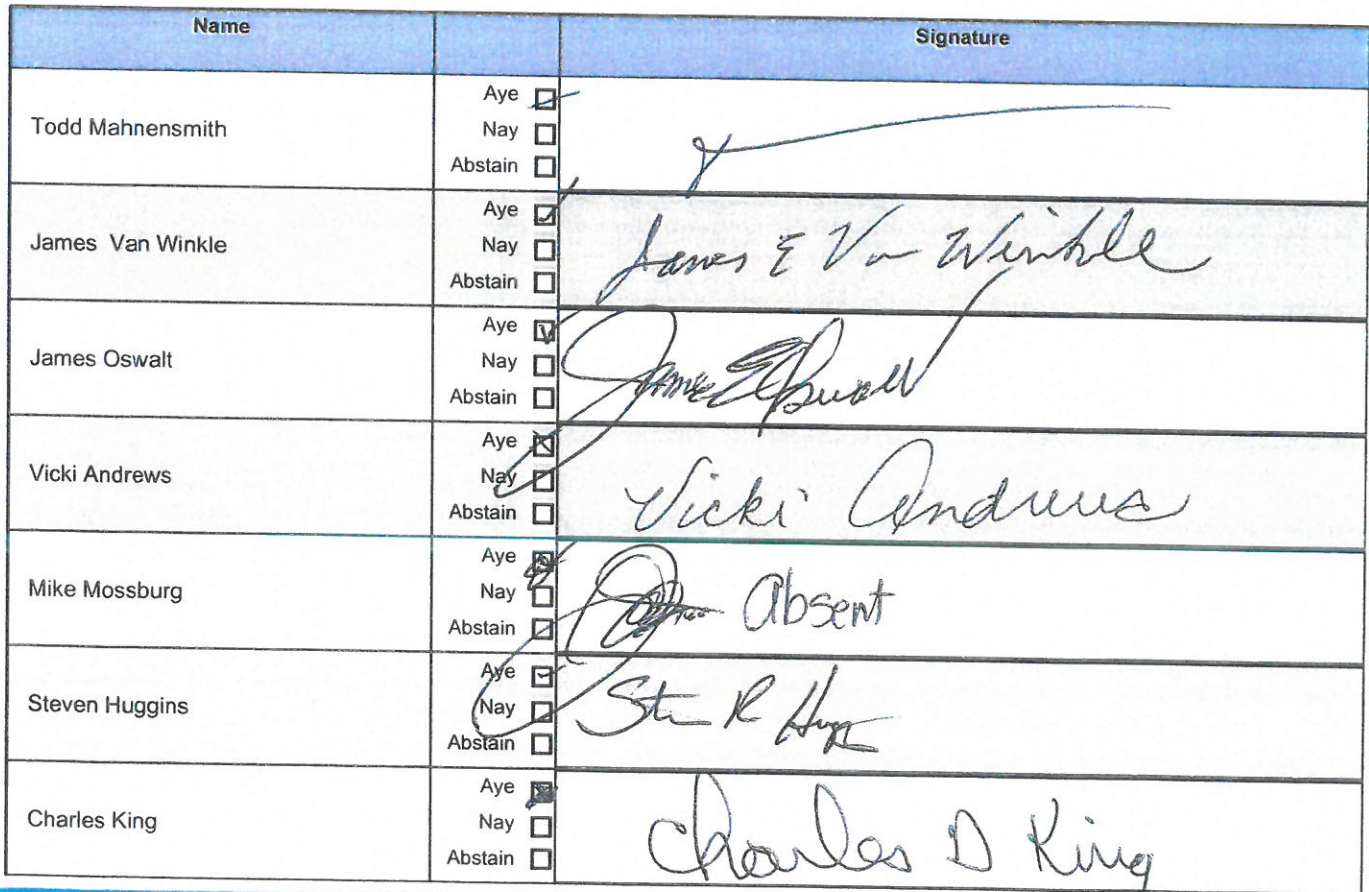 Name Signature
Todd Mahnensmith
Aye
Nay
Abstain
James Van Winkle
Aye
Nay
Abstain
James E Van Winkle
James Oswalt
Aye
Nay
Abstain
James E Oswalt
Vicki Andrews
Aye
Nay
Abstain
Vicki Andrews
Mike Mossburg
Aye
Nay
Abstain
Absent
Steven Huggins
Aye
Nay
Abstain
Charles King
Aye
Nay
Abstain
Charles D King